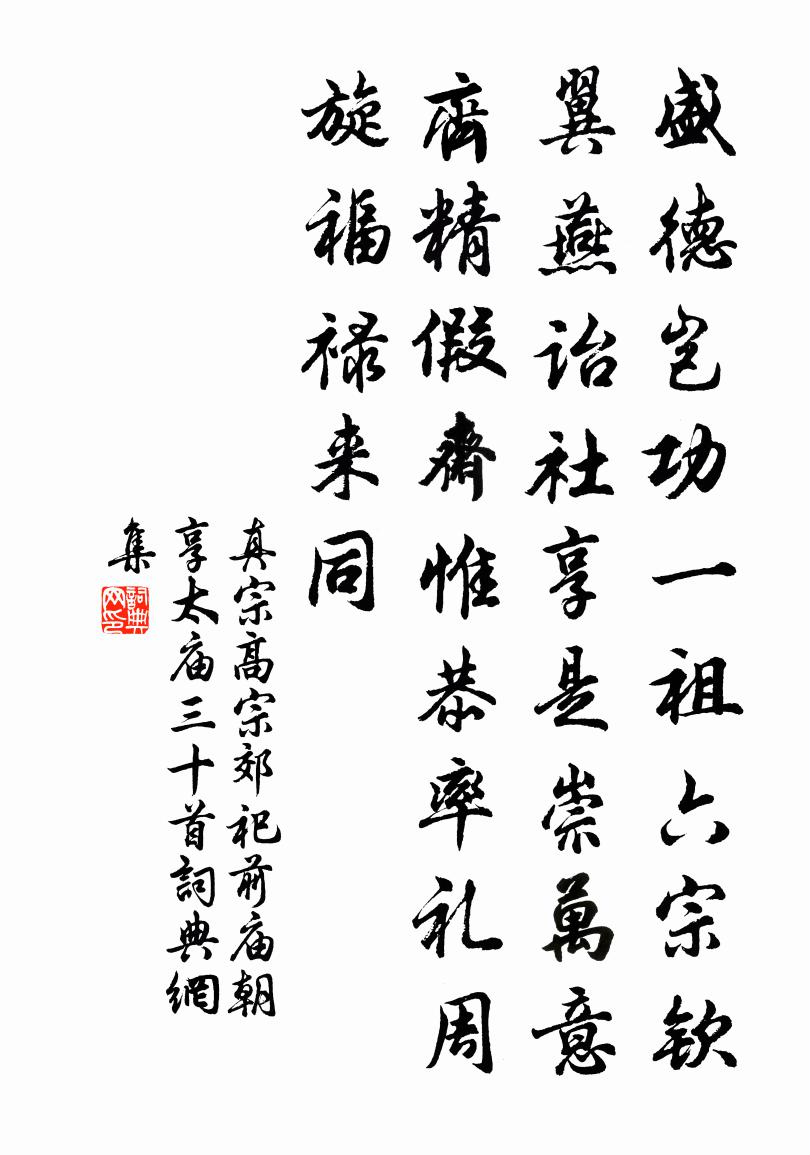 盛德岂功一祖六宗欽
翼燕诒社享是崇萬意
齊精假齋惟恭率礼周
旋福禄来同
真宗高宗郊祀前庙朝
享太庙三十首詞典網
集
詞典网印